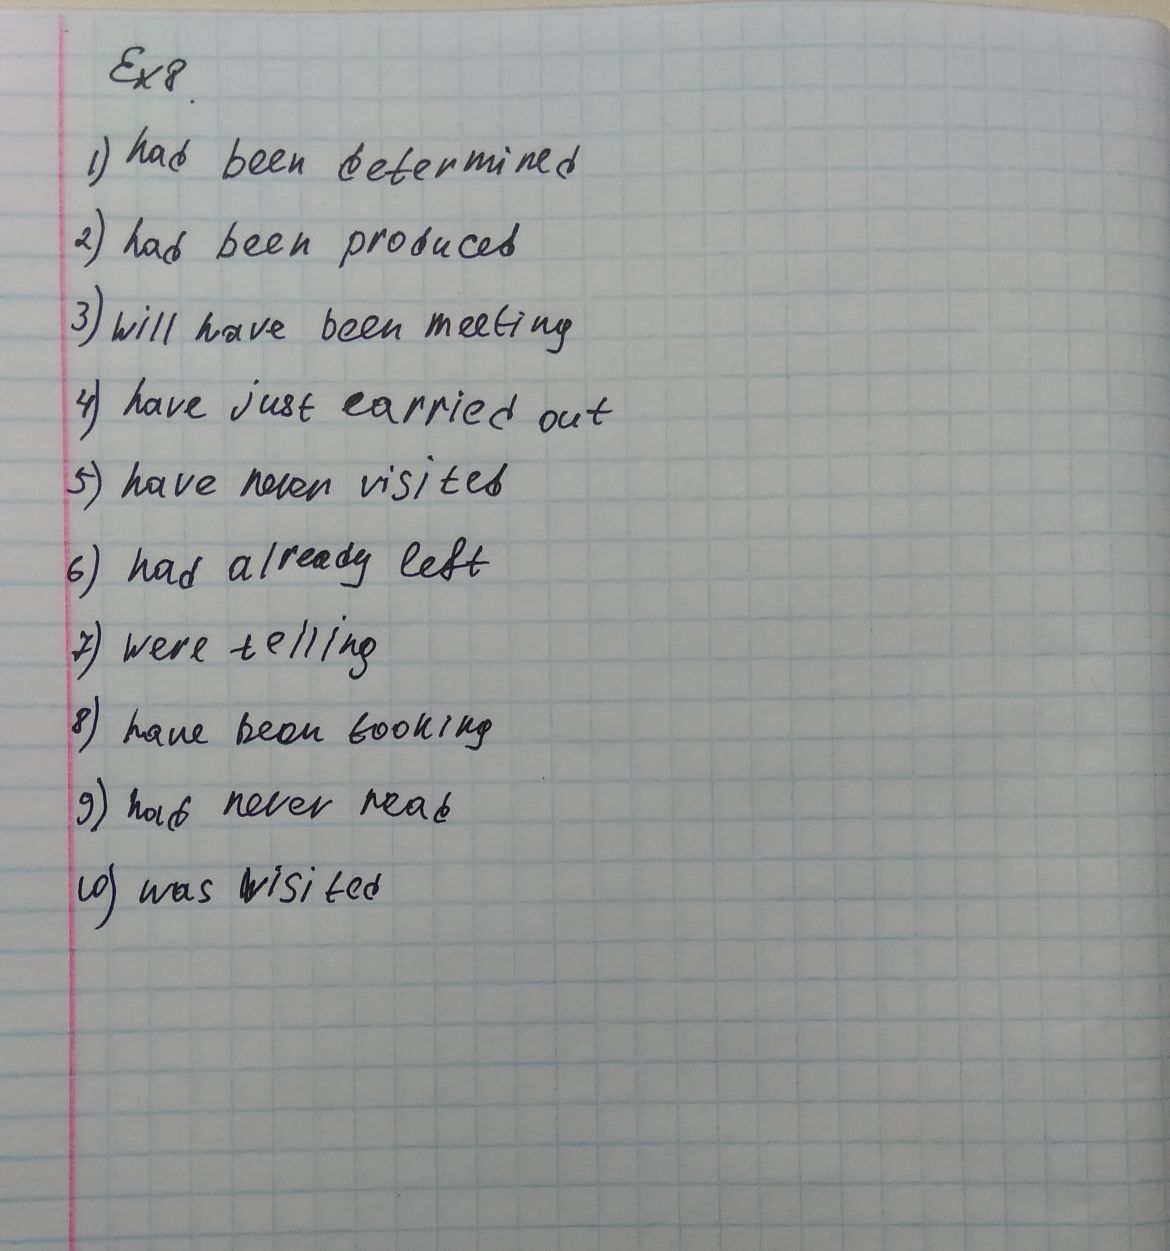 Ex8.
1) had been determined
2) had been produced
3) will have been meeting
4) have just carried out
5) have never visited
6) had already left
7) were telling
8) have been tooking
9) had never read
10) was visited